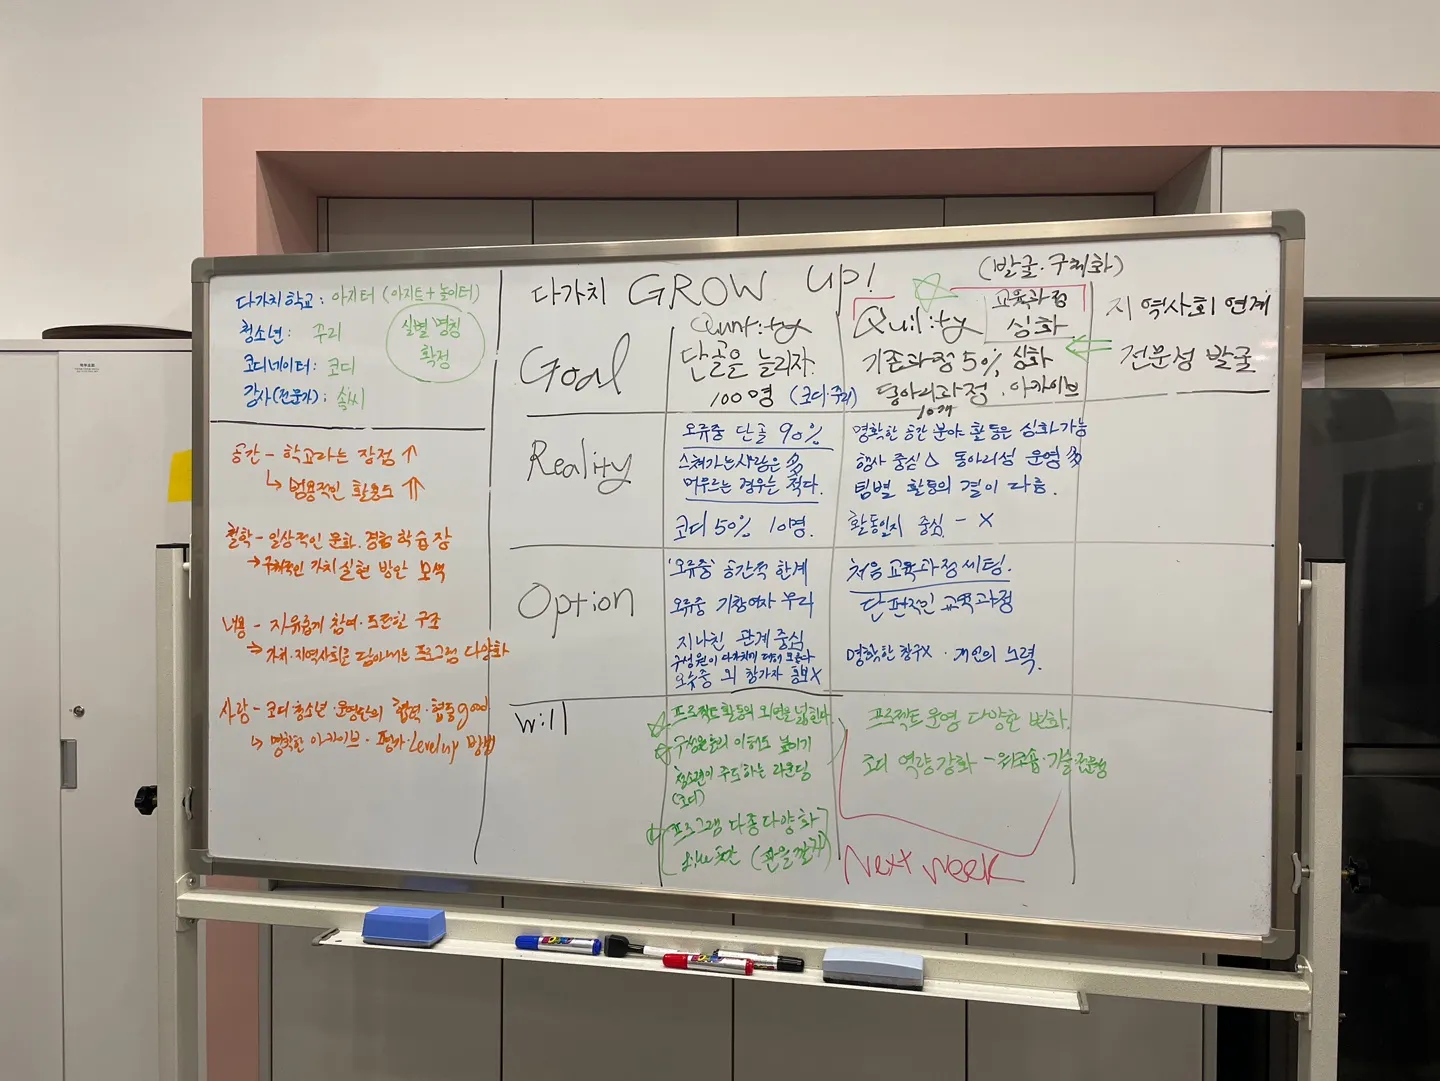 다가치학교 : 아지터 (아지트+놀이터)
청소년 : 꾸리
코디네이터 : 코디
강사(전문가) : 솜씨
실별 명칭
확정
공간 - 학교라는 장점 ↑
↳ 범용적인 활용도 ⇈
철학 - 일상적인 문화. 경험 학습 장
→ 구체적인 가치 실현 방안 모색
내용 - 자유롭게 참여·드란한 구조
→ 가치·지역사회를 담아내는 프로그램 다양화
사람 - 코디·청소년·운영단의 협력·협동 good
↳ 명확한 아카이브 · 평가·Level up 방법
다가치 GROW UP!
(발굴·구체화)
Goal
Quntity
단골을 늘리자.
100명 (코디·꾸리)
Quility
교육과정
심화
기존과정 50% 심화
동아리과정 · 아카이브
10개
지역사회 연계
전문성 발굴
Reality
오류중 단골 90%
스쳐가는 사람은 多
머무르는 경우는 적다.
코디 50% 10명.
명확한 공간 분야 활동은 심화가능
행사 중심 △ 동아리성 운영 多
팀별 활동의 결이 다름.
활동일지 중심 - X
Option
'오류중' 공간적 한계
오류중 기참여자 우리
지나친 관계 중심
구성원이 다가치에 대해 모른다
오류중 외 참가자 홍보X
처음 교육과정 세팅.
단편적인 교육과정
명확한 창구X · 개인의 노력.
Will
프로젝트 활동의 외연을 넓힌다.
구성원들의 이해도 높이기
청소년이 주도하는 라운딩
(코디)
프로그램 다종다양화
(판을 깔자)
프로젝트 운영 다양한 변화.
코디 역량 강화 - 워크숍·기술·전문성
Next week